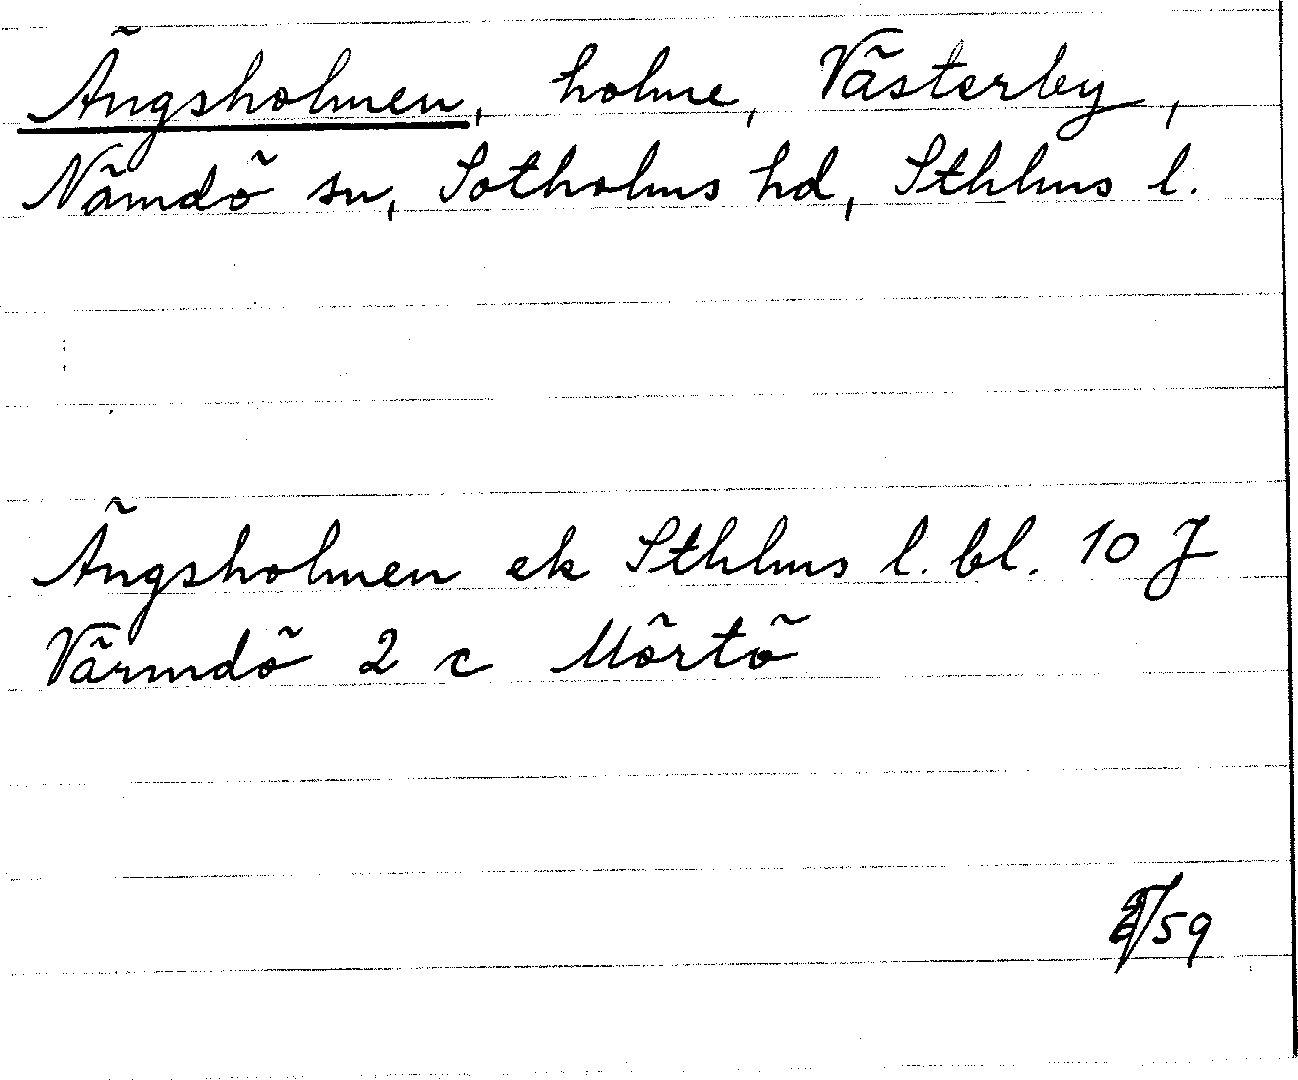 Ängsholmen, holme, Västerby,
Nämdö sn, Sotholms hd, Sthlms l.
Ängsholmen ek Sthlms l. bl. 10 J
Värmdö 2 c Mörtö
/59